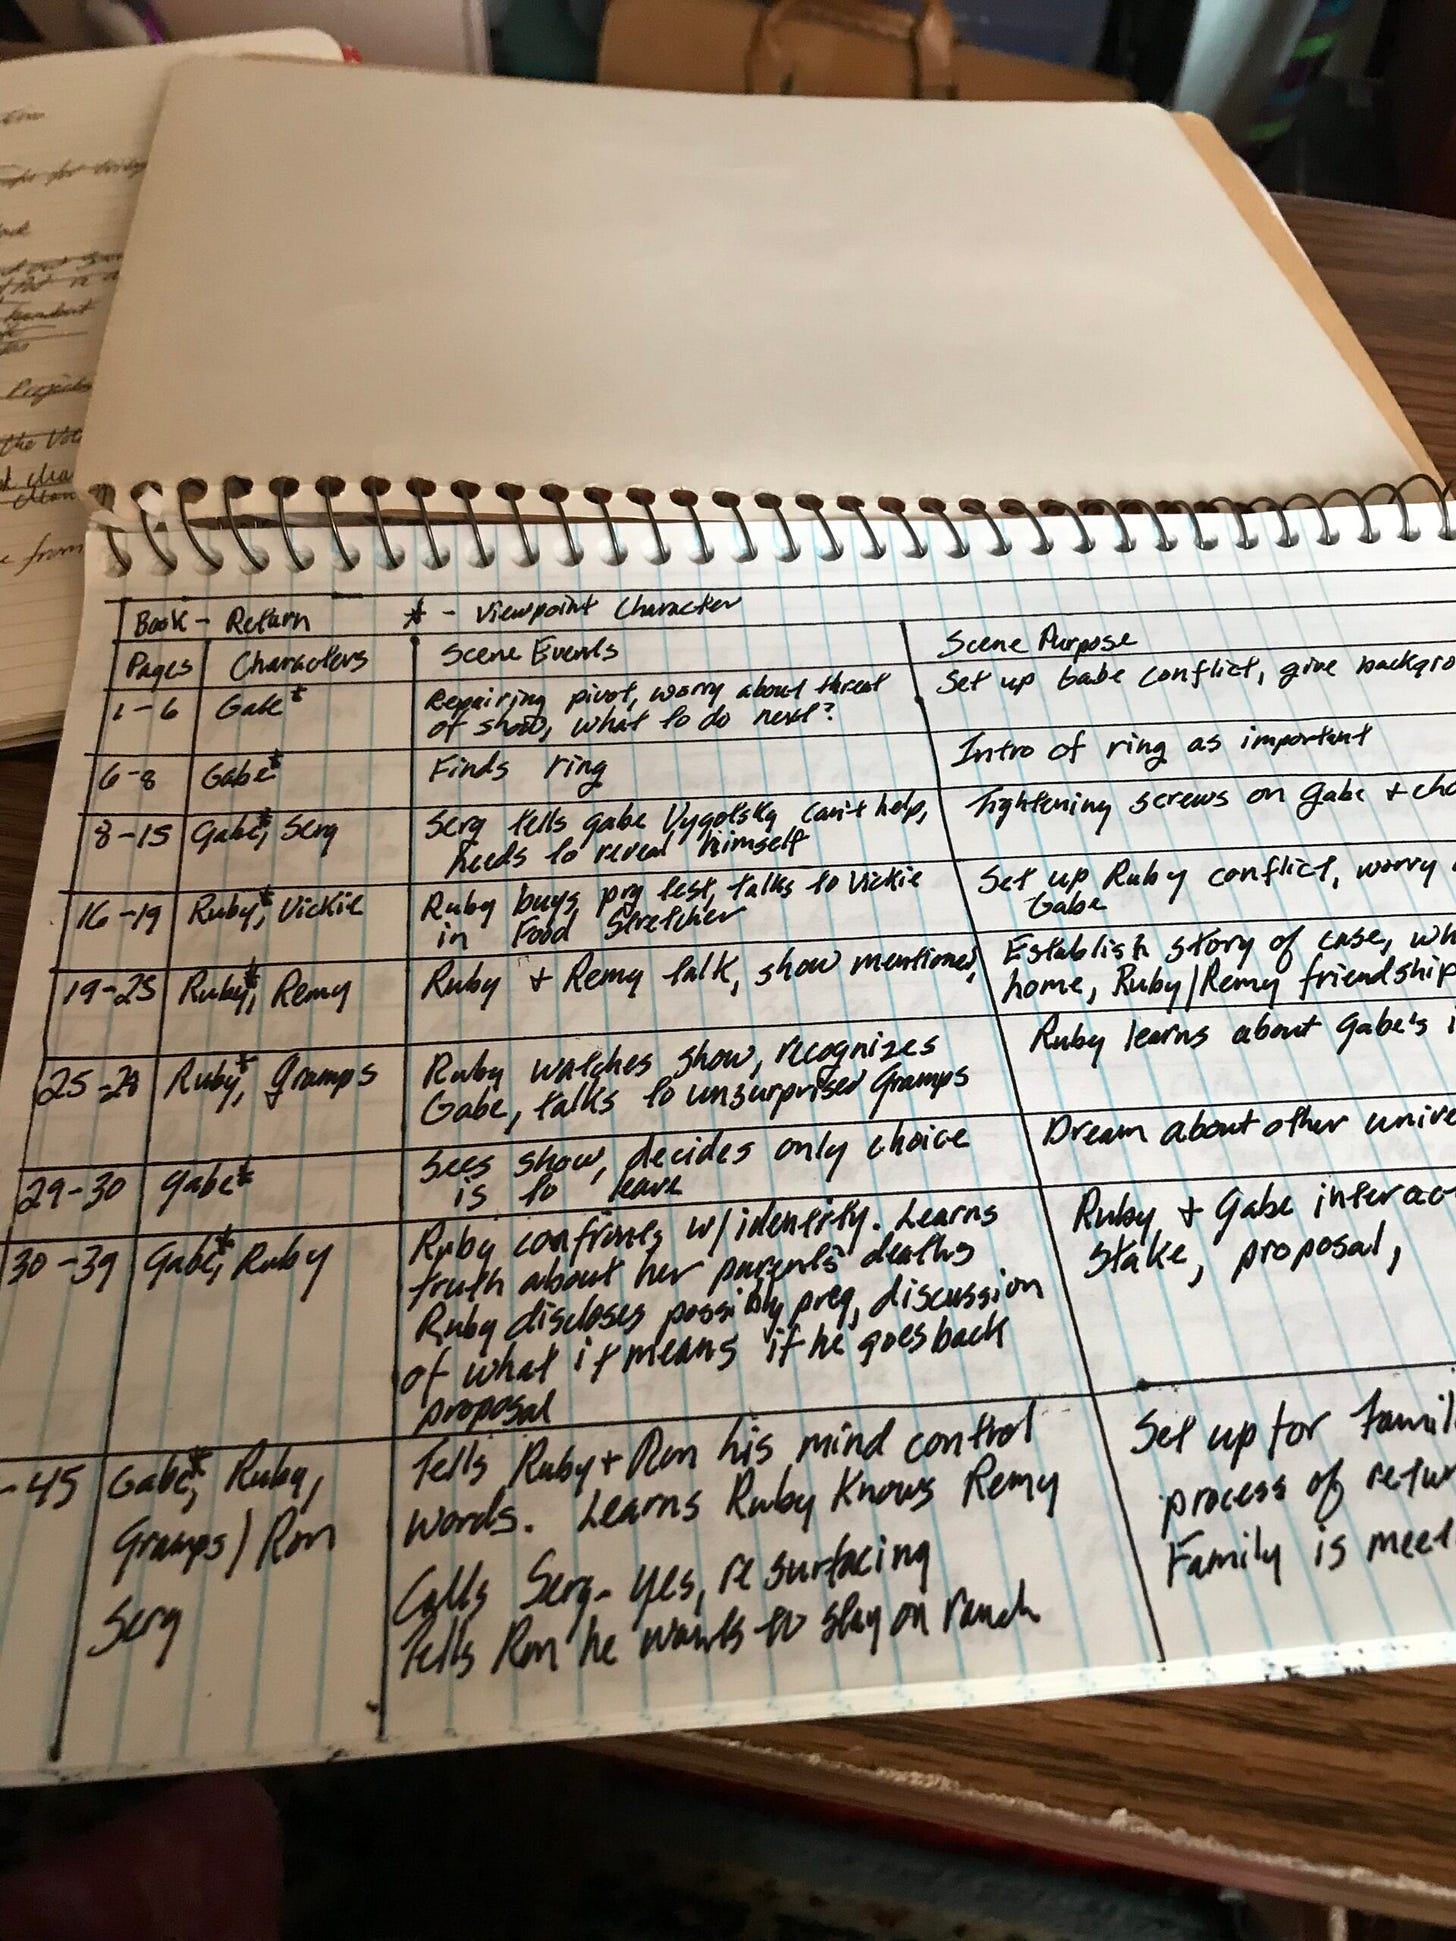 Book - Return * - Viewpoint Character
Pages Characters Scene Events Scene Purpose
1-6 Gabe* Repairing pivot, worry about threat
of show, what to do next?
Set up Gabe conflict, give backgro
6-8 Gabe* Finds ring
Intro of ring as important
8-15 Gabe*, Serg Serg tells gabe Vygotsky can't help,
needs to reveal himself
Tightening screws on Gabe + cho
16-19 Ruby*, Vickie Ruby buys prg test, talks to Vickie
in Food Stretcher
Set up Ruby conflict, worry
Gabe
19-25 Ruby*, Remy Ruby + Remy talk, show mentioned,
Establish story of case, wh
home, Ruby/Remy friendship
25-28 Ruby*, Gramps Ruby watches show, recognizes
Gabe, talks to unsurprised Gramps
Ruby learns about Gabe's i
29-30 Gabe* Sees show, decides only choice
is to leave
Dream about other unive
30-39 Gabe*, Ruby Ruby confronts w/identity. Learns
truth about her parents' deaths
Ruby discloses possibly preg, discussion
of what it means if he goes back
proposal
Ruby + Gabe interac
Stake, proposal,
-45 Gabe*, Ruby,
Gramps/Ron
Serg
Tells Ruby + Ron his mind control
words. Learns Ruby Knows Remy
Calls Serg - yes, resurfacing
Tells Ron he wants to stay on ranch
Set up for Famil
process of retur
Family is meet
the
from